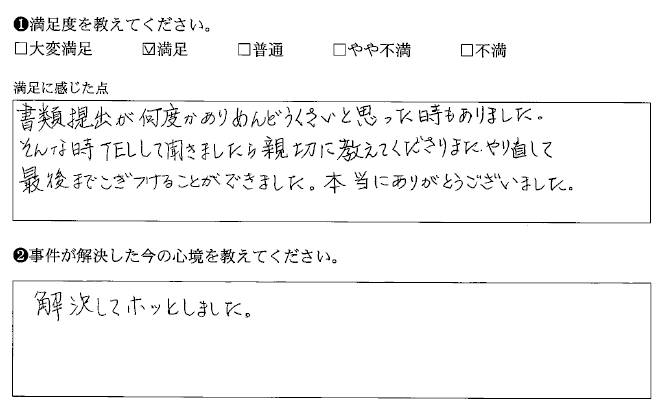 ❶満足度を教えてください。
□大変満足 ☑満足 □普通 □やや不満 □不満
満足に感じた点
書類提出が何度かありめんどうくさいと思った時もありました。
そんな時TELして聞きましたら親切に教えてくださりまた、やり直して
最後までこぎつけることができました。本当にありがとうございました。
❷事件が解決した今の心境を教えてください。
解決してホッとしました。